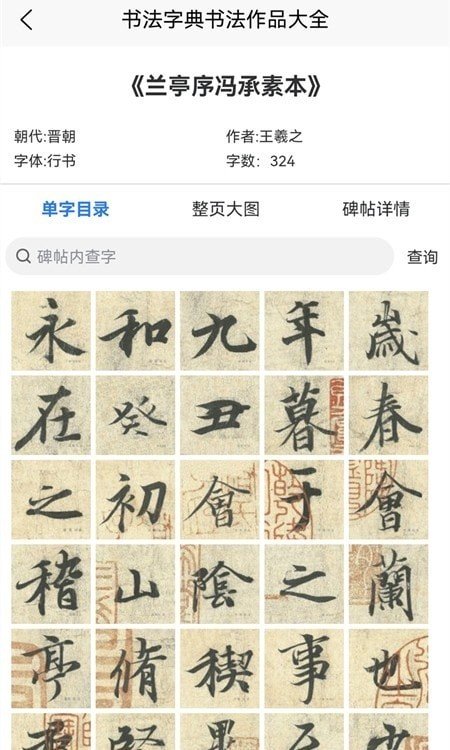 书法字典书法作品大全
《兰亭序冯承素本》
朝代:晋朝
作者:王羲之
字体:行书
字数：324
单字目录
整页大图
碑帖详情
碑帖内查字
查询
永和九年歳
在癸丑暮春
之初會于會
稽山陰之蘭
亭脩稧事也